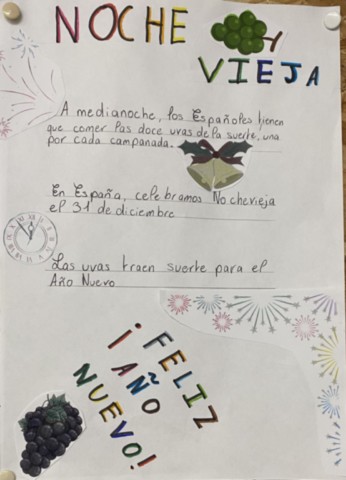 NOCHE
VIEJA
A medianoche, los Españoles tienen
que comer las doce uvas de la suerte, una
por cada campanada.
En España, celebramos Nochevieja
el 31 de diciembre
Las uvas traen suerte para el
Año Nuevo
¡FELIZ
¡AÑO
NUEVO!